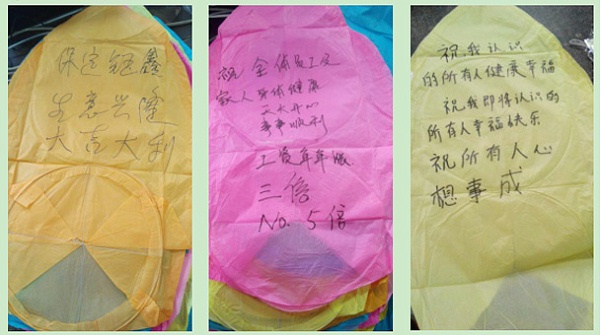 保定钜鑫
生意兴隆
大吉大利
祝全体员工及
家人身体健康
天天开心
事事顺利
工资年年涨
三倍
No. 5倍
祝.我认识
的所有人健康幸福
祝我即将认识的
所有人幸福快乐
祝所有人心
想事成